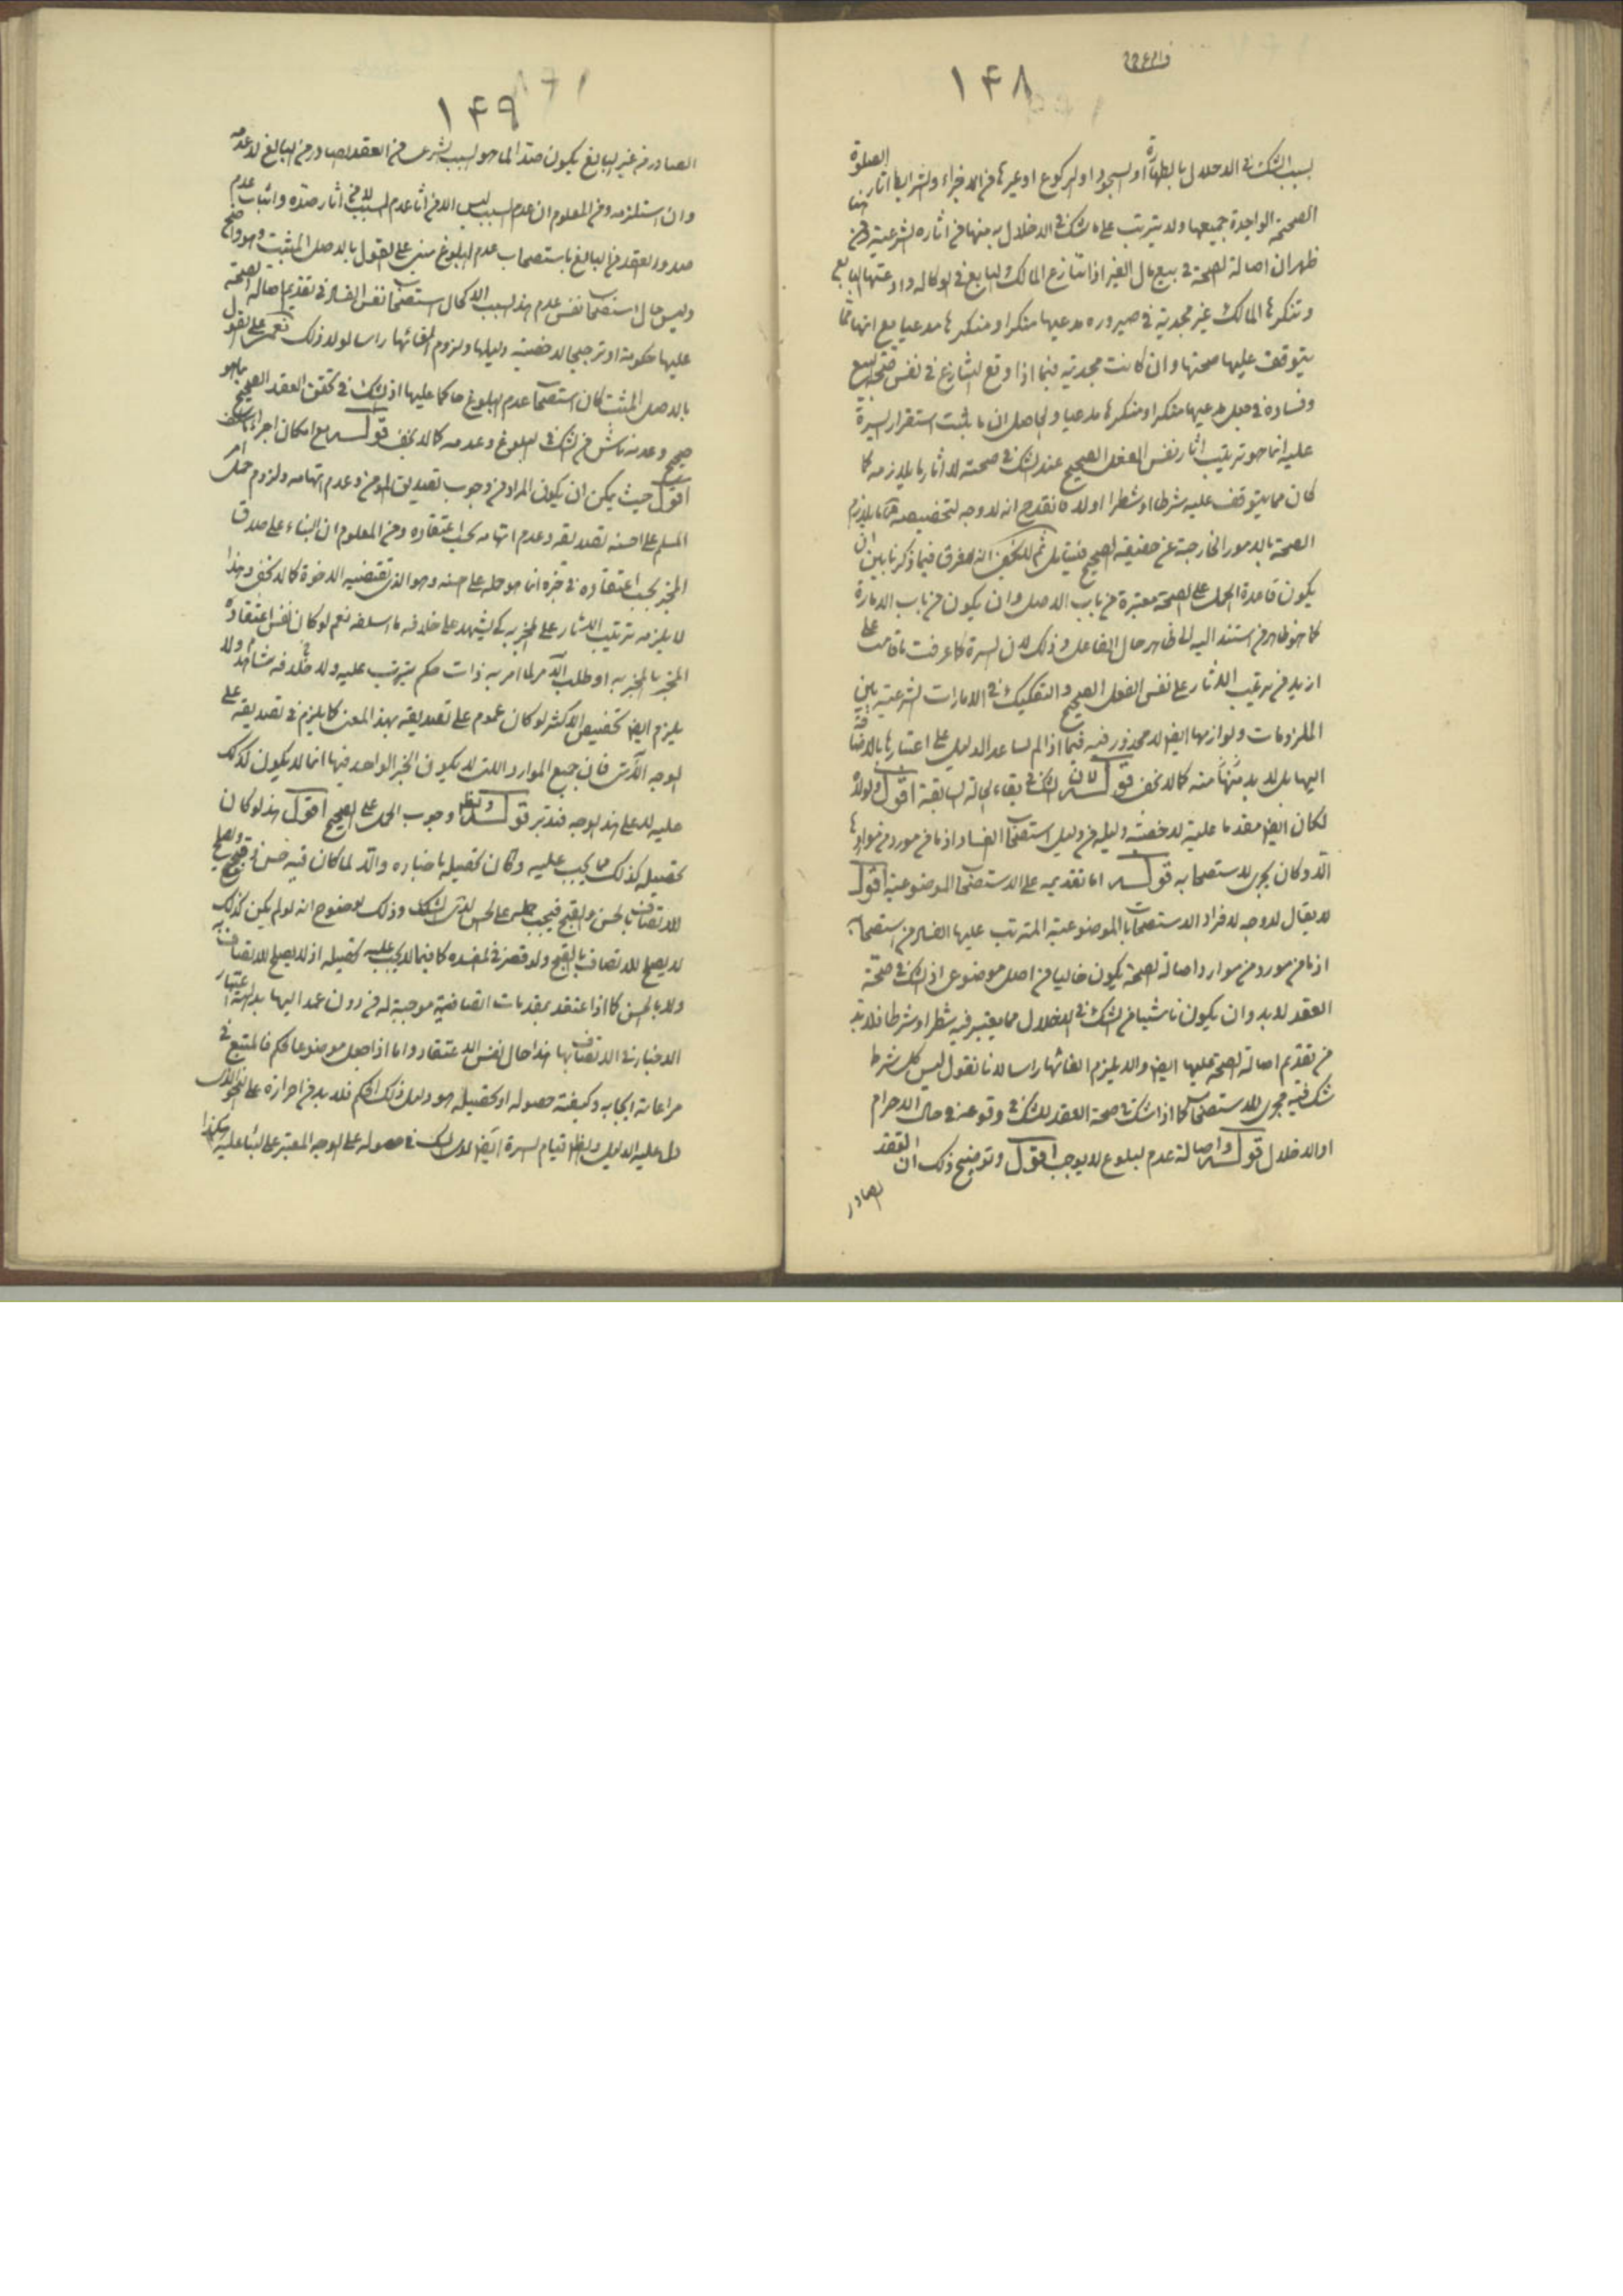 ١۴٨
بسبب الشك فى الاخلال بالطهارة او السجود او الركوع او غيرها من الاجزاء والشرايط اثار الصلوة
الصحيحة الواجدة لجميعها ولا يترتب على ما شك فى الاخلال به منها من اثاره الشرعية ومن هنا
ظهر ان اصالة الصحة فى بيع مال الغير اذا تنازع المالك والبايع فى الوكالة وادعتها البايع
وتنكرها المالك غير مجدية فى صيرورة مدعيها منكرا ومنكرها مدعيا مع انها مما
يتوقف عليها صحتها وان كانت مجدية فيما اذا وقع التنازع فى نفس صحة البيع
وفساده فى جعل مدعيها منكرا ومنكرها مدعيا والحاصل ان ما ثبت استقرار السيرة
عليه انما هو ترتيب اثار نفس الفعل الصحيح عند الشك فى صحته لا اثار ما يلازمه كما
كان مما يتوقف عليه شرطا او شطرا اولا فانقدح انه لا وجه لتخصيصه ما يلازم
الصحة بالامور الخارجة عن حقيقة الصحيح فليتأمل ثم لا يخفى انه لا فرق فيما ذكرنا بين ان
يكون قاعدة الحمل على الصحة معتبرة من باب الاصل وان يكون من باب الامارة
كما هو ظاهر من استند اليه الى ظاهر حال الفاعل وذلك لان السيرة كما عرفت ما قامت على
ازيد من ترتيب الاثار على نفس الفعل الصحيح والتفكيك فى الامارات الشرعية بين
الملزومات ولوازمها ايضا لا محذور فيه فيما اذا لم يساعد الدليل على اعتبارها بالاضافة
اليها بل لا بد منه كما لا يخفى قوله لان الشك فى بقاء الحالة السابقة اقول ولولاه
لكان ايضا مقدما عليه لاخصية دليله من دليل استصحاب الفساد اذ ما من مورد من مواردها
الا وكان يجرى الاستصحاب به قوله اما تقديمه على الاستصحاب الموضوعية اقول
لا يقال لا وجه لافراد الاستصحابات الموضوعية المترتب عليها الفساد من استصحابه
اذ ما من مورد من موارد اصالة الصحة يكون خاليا من اصل موضوعى اذ الشك فى صحة
العقد لا بد وان يكون ناشيا من الشك فى الاخلال مما يعتبر فيه شطرا وشرطا فلا بد
من تقديم اصالة الصحة عليها ايضا والا يلزم الغائها راسا لانا نقول ليس كل شرط
شك فيه مجرى للاستصحاب كما اذا شك فى صحة العقد للشك فى وقوعه فى حال الاحرام
او الاحلال قوله واصالة عدم البلوغ لا يوجب اقول وتوضيح ذلك ان العقد
الصادر
١۴٩
الصادر من غير البالغ يكون ضدا لما هو السبب الشرعى من العقد الصادر من البالغ لا عدمه
وان استلزمه ومن المعلوم ان عدم السبب ليس الا من اثار عدم السبب لا من اثار ضده واثبات عدم
صدور العقد من البالغ باستصحاب عدم البلوغ مبنى على القول بالاصل المثبت وهو واضح
وليس حال استصحاب نفس عدم هذا السبب الا كحال استصحاب نفس الفساد فى تقديم اصالة الصحة
عليها حكومة او ترجيحا لاخصية دليلها ولزوم الغائها راسا لولا ذلك نعم على القول
بالاصل المثبت كان استصحاب عدم البلوغ حاكما عليها اذ الشك فى تحقق العقد الصحيح بما هو
صحيح وعدمه ناش من الشك فى البلوغ وعدمه كما لا يخفى قوله مع امكان اجراء
اقول حيث يمكن ان يكون المراد من وجوب تصديق المؤمن وعدم اتهامه ولزوم حمل امر
المسلم على احسنه تصديقه وعدم اتهامه بحسب اعتقاده ومن المعلوم ان البناء على صدق
المخبر بحسب اعتقاده فى خبره انما هو حمله على حسنه وهو الذى تقتضيه الاخوة كما لا يخفى وهذا
لا يلزمه ترتيب الاثار على المخبر به كى يشهد على خلافه ما اسلفه نعم لو كان نفس اعتقاد
المخبر بالمخبر به او طلب الامر لما امر به ذات حكم يترتب عليه ولا خلافه شاهد ولا
يلزم ايضا تخصيص الاكثر لو كان عموم على تصديقه بهذا المعنى كما يلزم فى تصديقه على
الوجه الآخر فان جميع الموارد التى لا يكون الخبر الواحد فيها انما لا يكون كذلك
عليه لا على هذا الوجه فتدبر قوله وجوب الحمل على الصحيح اقول هذا لو كان
تحصيله كذلك مما يجب عليه وكان تحصيله باختياره والا لما كان فيه حسن وقبح
للاتصاف بالحسن والقبح فيجب حمله على الحسن لدى الشك وذلك لوضوح انه لو لم يكن كذلك
لا يصلح للاتصاف بالقبح ولو قصر فى مقدمه كما فيما لا يجب عليه تحصيله اذ لا يصلح للاتصاف به
ولا بالحسن كما اذا اعتقد بمقدمات اتفاقية موجبة له من دون عمد اليها بداهة اعتبار
الاختيار فى الاتصاف بها هذا حال نفس الاعتقاد واما اذا جعل موضوعا لحكم فالمتبع فى
مراعاة ايجابه وكيفية حصوله او تحصيله هو دليل ذلك الحكم فلا بد من احرازه على النحو الذى
دل عليه الدليل قيام السيرة ايضا لدى الشك فى حصوله على الوجه المعتبر على البناء عليه هكذا